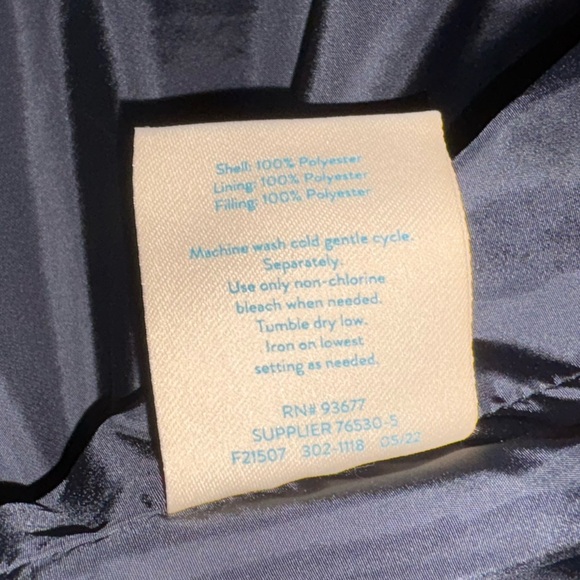 Shell: 100% Polyester
Lining: 100% Polyester
Filling: 100% Polyester
Machine wash cold gentle cycle.
Separately.
Use only non-chlorine
bleach when needed.
Tumble dry low.
Iron on lowest
setting as needed.
RN# 93677
SUPPLIER 76530-5
F21507 302-1118 05/22